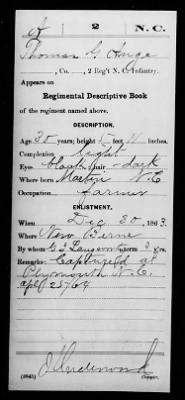 A 2 N.C.
Thomas G
, Co. , 2 Reg't N. C. Infantry.
Appears on
Regimental Descriptive Book
of the regiment named above.
DESCRIPTION.
Age 30 years; height 5 feet 11 inches.
Complexion Light
Eyes ; hair dark
Where born Martin N.C
Occupation Farmer
ENLISTMENT.
When Dec 30, 1863.
Where New Berne
By whom ; term 3 y'rs.
Remarks: Captured at
Plymouth N.C.
apl
J Underwood
Copyist.